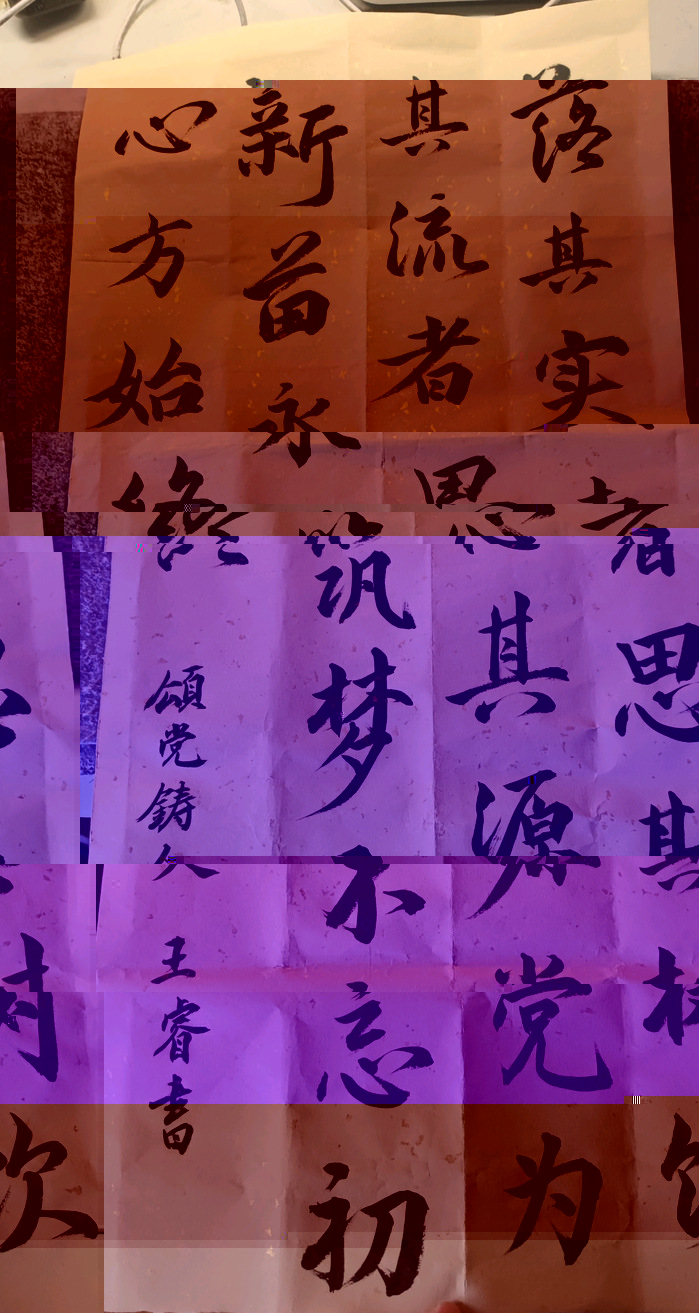 落其实者思其树饮
其流者思其源党为
新苗永筑梦不忘初
心方始终
頌党鋳 王睿書